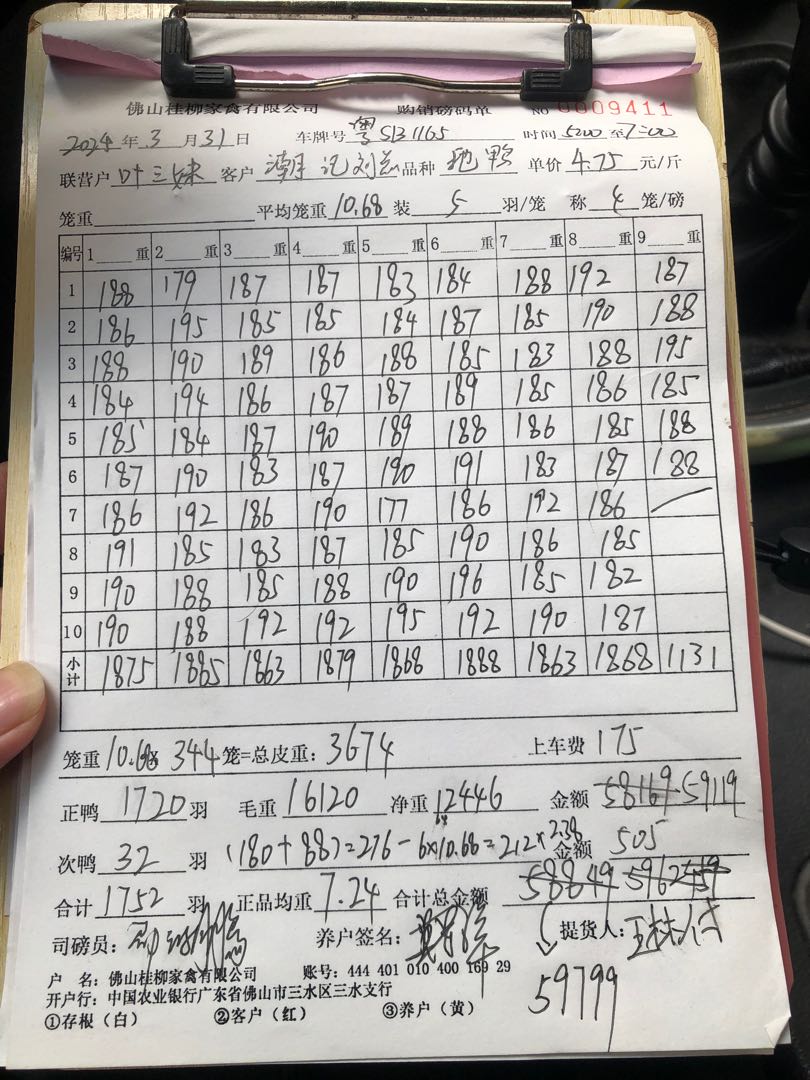 佛山桂柳家禽有限公司 购销磅码单 NO 0009411
2024年3月31日 车牌号 粤SB1165 时间 5:00至7:00
联营户 叶三妹 客户 潮记刘总 品种 鸭 单价 4.75 元/斤
笼重 平均笼重 10.68 装 5 羽/笼 称 4 笼/磅
编号 1 重 2 重 3 重 4 重 5 重 6 重 7 重 8 重 9 重
1 188 179 187 187 183 184 188 192 187
2 186 195 185 185 184 187 185 190 188
3 188 190 189 186 188 185 183 188 195
4 184 194 186 187 187 189 185 186 185
5 185 184 187 190 189 188 186 185 188
6 187 190 183 187 190 191 183 187 188
7 186 192 186 190 177 186 192 186
8 191 185 183 187 185 190 186 185
9 190 188 185 188 190 196 185 182
10 190 188 192 192 195 192 190 187
小计 1875 1885 1863 1879 1868 1888 1863 1868 1131
笼重 10.68x 344 笼=总皮重: 3674 上车费 175
正鸭 1720 羽 毛重 16120 净重 12446 金额 58169 59119
次鸭 32 羽 (180+88)=276-6×10.68=212×2.38 金额 505
合计 1752 羽 正品均重 7.24 合计总金额 58849
司磅员: 养户签名: 提货人:
59799
户 名: 佛山桂柳家禽有限公司 账号: 444 401 010 400 169 29
开户行: 中国农业银行广东省佛山市三水区三水支行
①存根(白) ②客户(红) ③养户(黄)